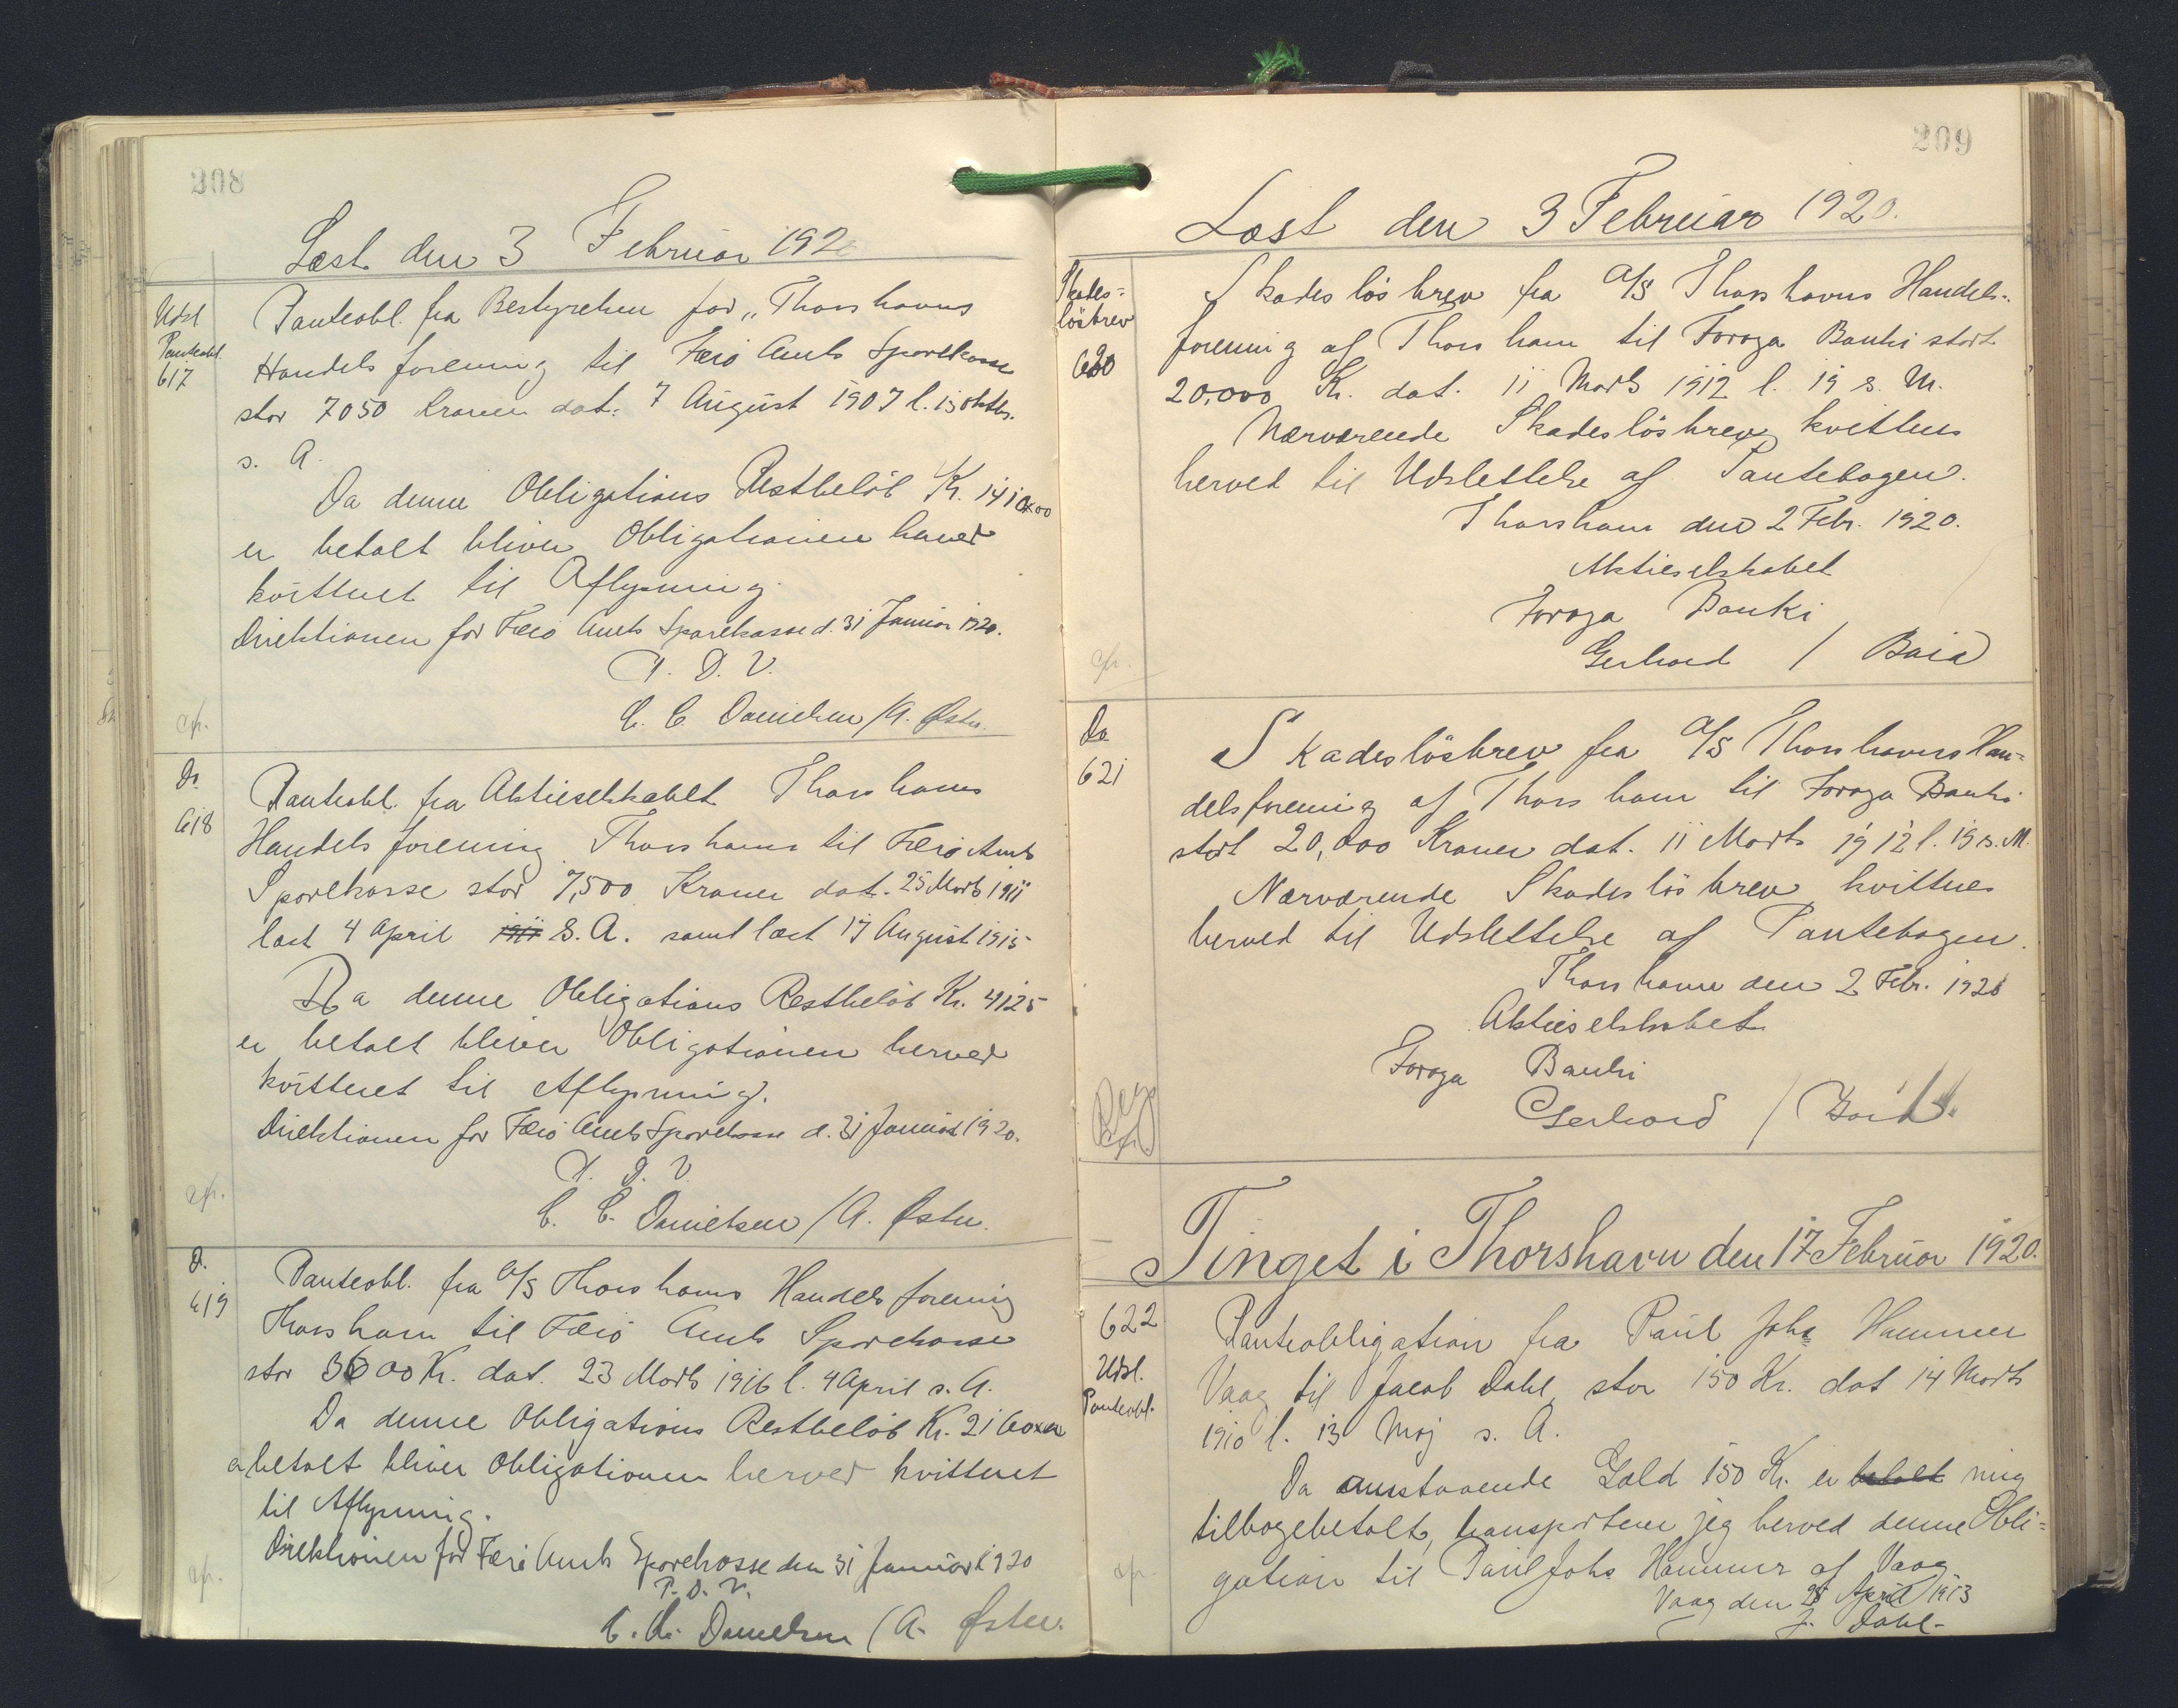 208
Læst den 3 Februar 1920
Udsl
Panteobl.
617
Panteobl. fra Bestyrelsen for „Thorshavns
Handelsforening til Færø Amts Sparekasse
stor 7050 Kroner dat. 7 August 1907 l. 15 Oktbr.
s. A.
Da denne Obligations Restbeløb Kr. 1410x00
er betalt bliver Obligationen herved
kvitteret til Aflysning.
Direktionen for Færø Amts Sparekasse d. 31 Januar 1920.
P. D. V.
C. C. Danielsen / A. Øster.
cfr.
Do
618
Panteobl. fra Aktieselskabet Thorshavns
Handelsforening Thorshavn til Færø Amts
Sparekasse stor 7,500 Kroner dat. 25 Marts 1911
læst 4 April 1911 S. A. samt læst 17 August 1915
Da denne Obligations Restbeløb Kr. 4125
er betalt bliver Obligationen herved
kvitteret til Aflysning.
Direktionen for Færø Amts Sparekasse d. 31 Januar 1920.
P. D. V.
C. C. Danielsen / A. Øster.
cfr.
D.
619
Panteobl. fra A/S Thorshavns Handelsforening
Thorshavn til Færø Amts Sparekasse
stor 3600 Kr. dat. 23 Marts 1916 l. 4 April s. A.
Da denne Obligations Restbeløb Kr. 2160x00
er betalt bliver Obligationen herved kvitteret
til Aflysning.
Direktionen for Færø Amts Sparekasse den 31 Januar 1920
P. D. V.
C. C. Danielsen / A. Øster.
cfr.
209
Læst den 3 Februar 1920.
Skades=
løsbrev
620
Skadesløsbrev fra A/S Thorshavns Handels-
forening af Thorshavn til Føroya Banki stort
20,000 Kr. dat. 11 Marts 1912 l. 19 s. M.
Nærværende Skadesløsbrev kvitteres
herved til Udslettelse af Pantebogen.
Thorshavn den 2 Febr. 1920.
Aktieselskabet
Føroya Banki
Gerhard / Baia
cfr.
Do
621
Skadesløsbrev fra A/S Thorshavns Han=
delsforening af Thorshavn til Føroya Banki
stort 20,000 Kroner dat. 11 Marts 1912 l. 19 s. M.
Nærværende Skadesløsbrev kvitteres
herved til Udslettelse af Pantebogen.
Thorshavn den 2 Febr. 1920
Aktieselskabet
Føroya Banki
Gerhard /
Tinget i Thorshavn den 17 Februar 1920.
622
Udsl.
Panteobl.
Panteobligation fra Paul Johs Hammer
Vaag til Jacob Dahl, stor 150 Kr. dat 14 Marts
1910 l. 13 Maj s. A.
Da omstaaende Gæld 150 Kr. er betalt mig
tilbagebetalt, transporterer jeg herved denne Obli=
gation til Paul Johs Hammer af Vaag
Vaag den 28 April 1913
J. Dahl.
cfr.